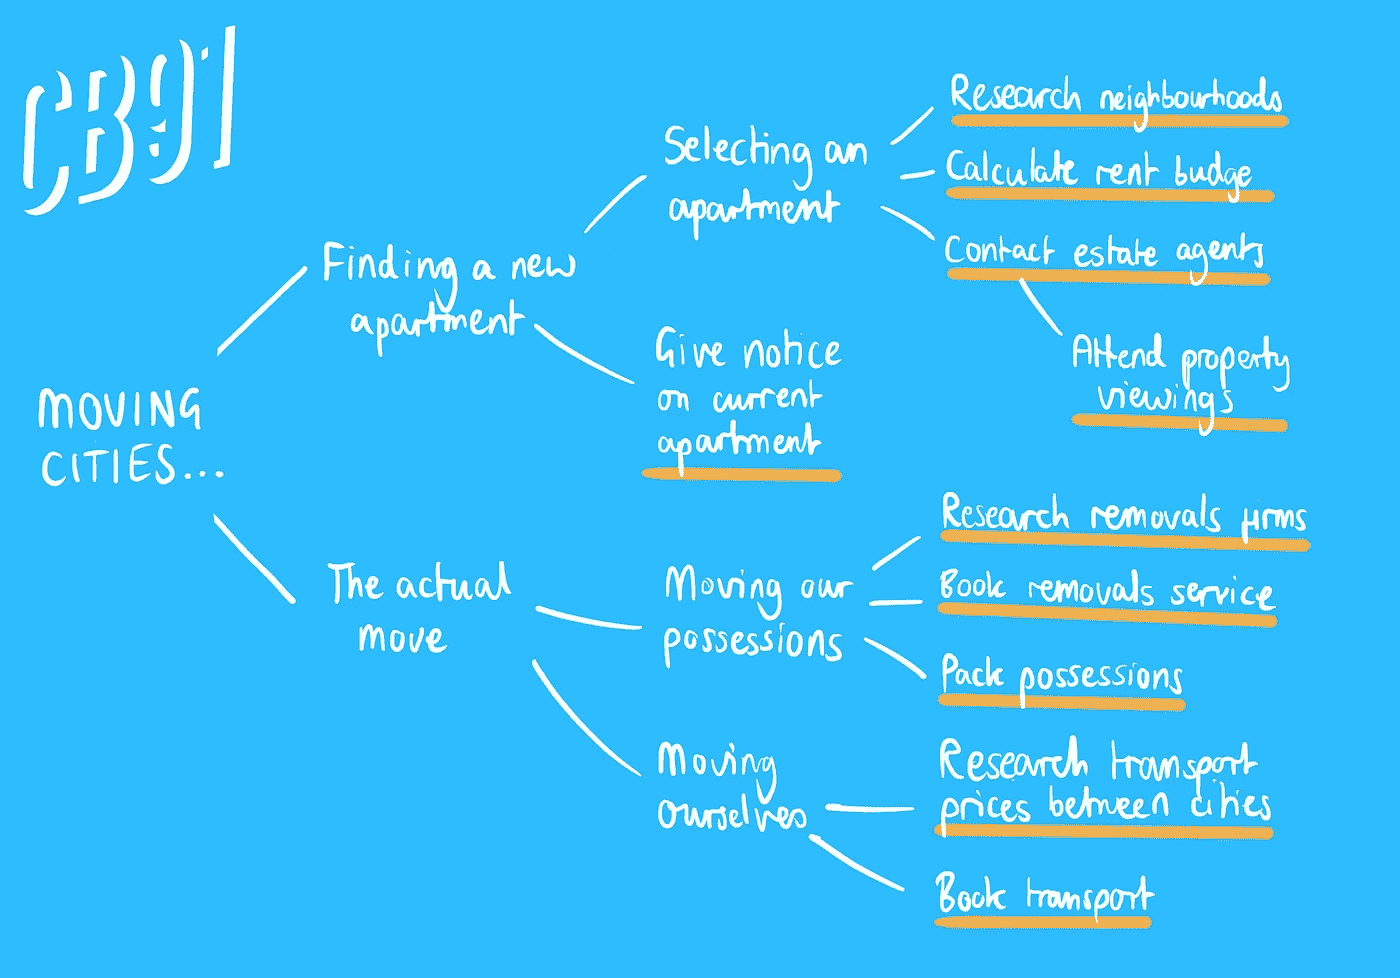 CB91
MOVING
CITIES...
Finding a new
apartment
Selecting an
apartment
Research neighbourhoods
Calculate rent budge
Contact estate agents
Attend property
viewings
Give notice
on current
apartment
The actual
move
Moving our
possessions
Research removals firms
Book removals service
Pack possessions
Moving
ourselves
Research transport
prices between cities
Book transport